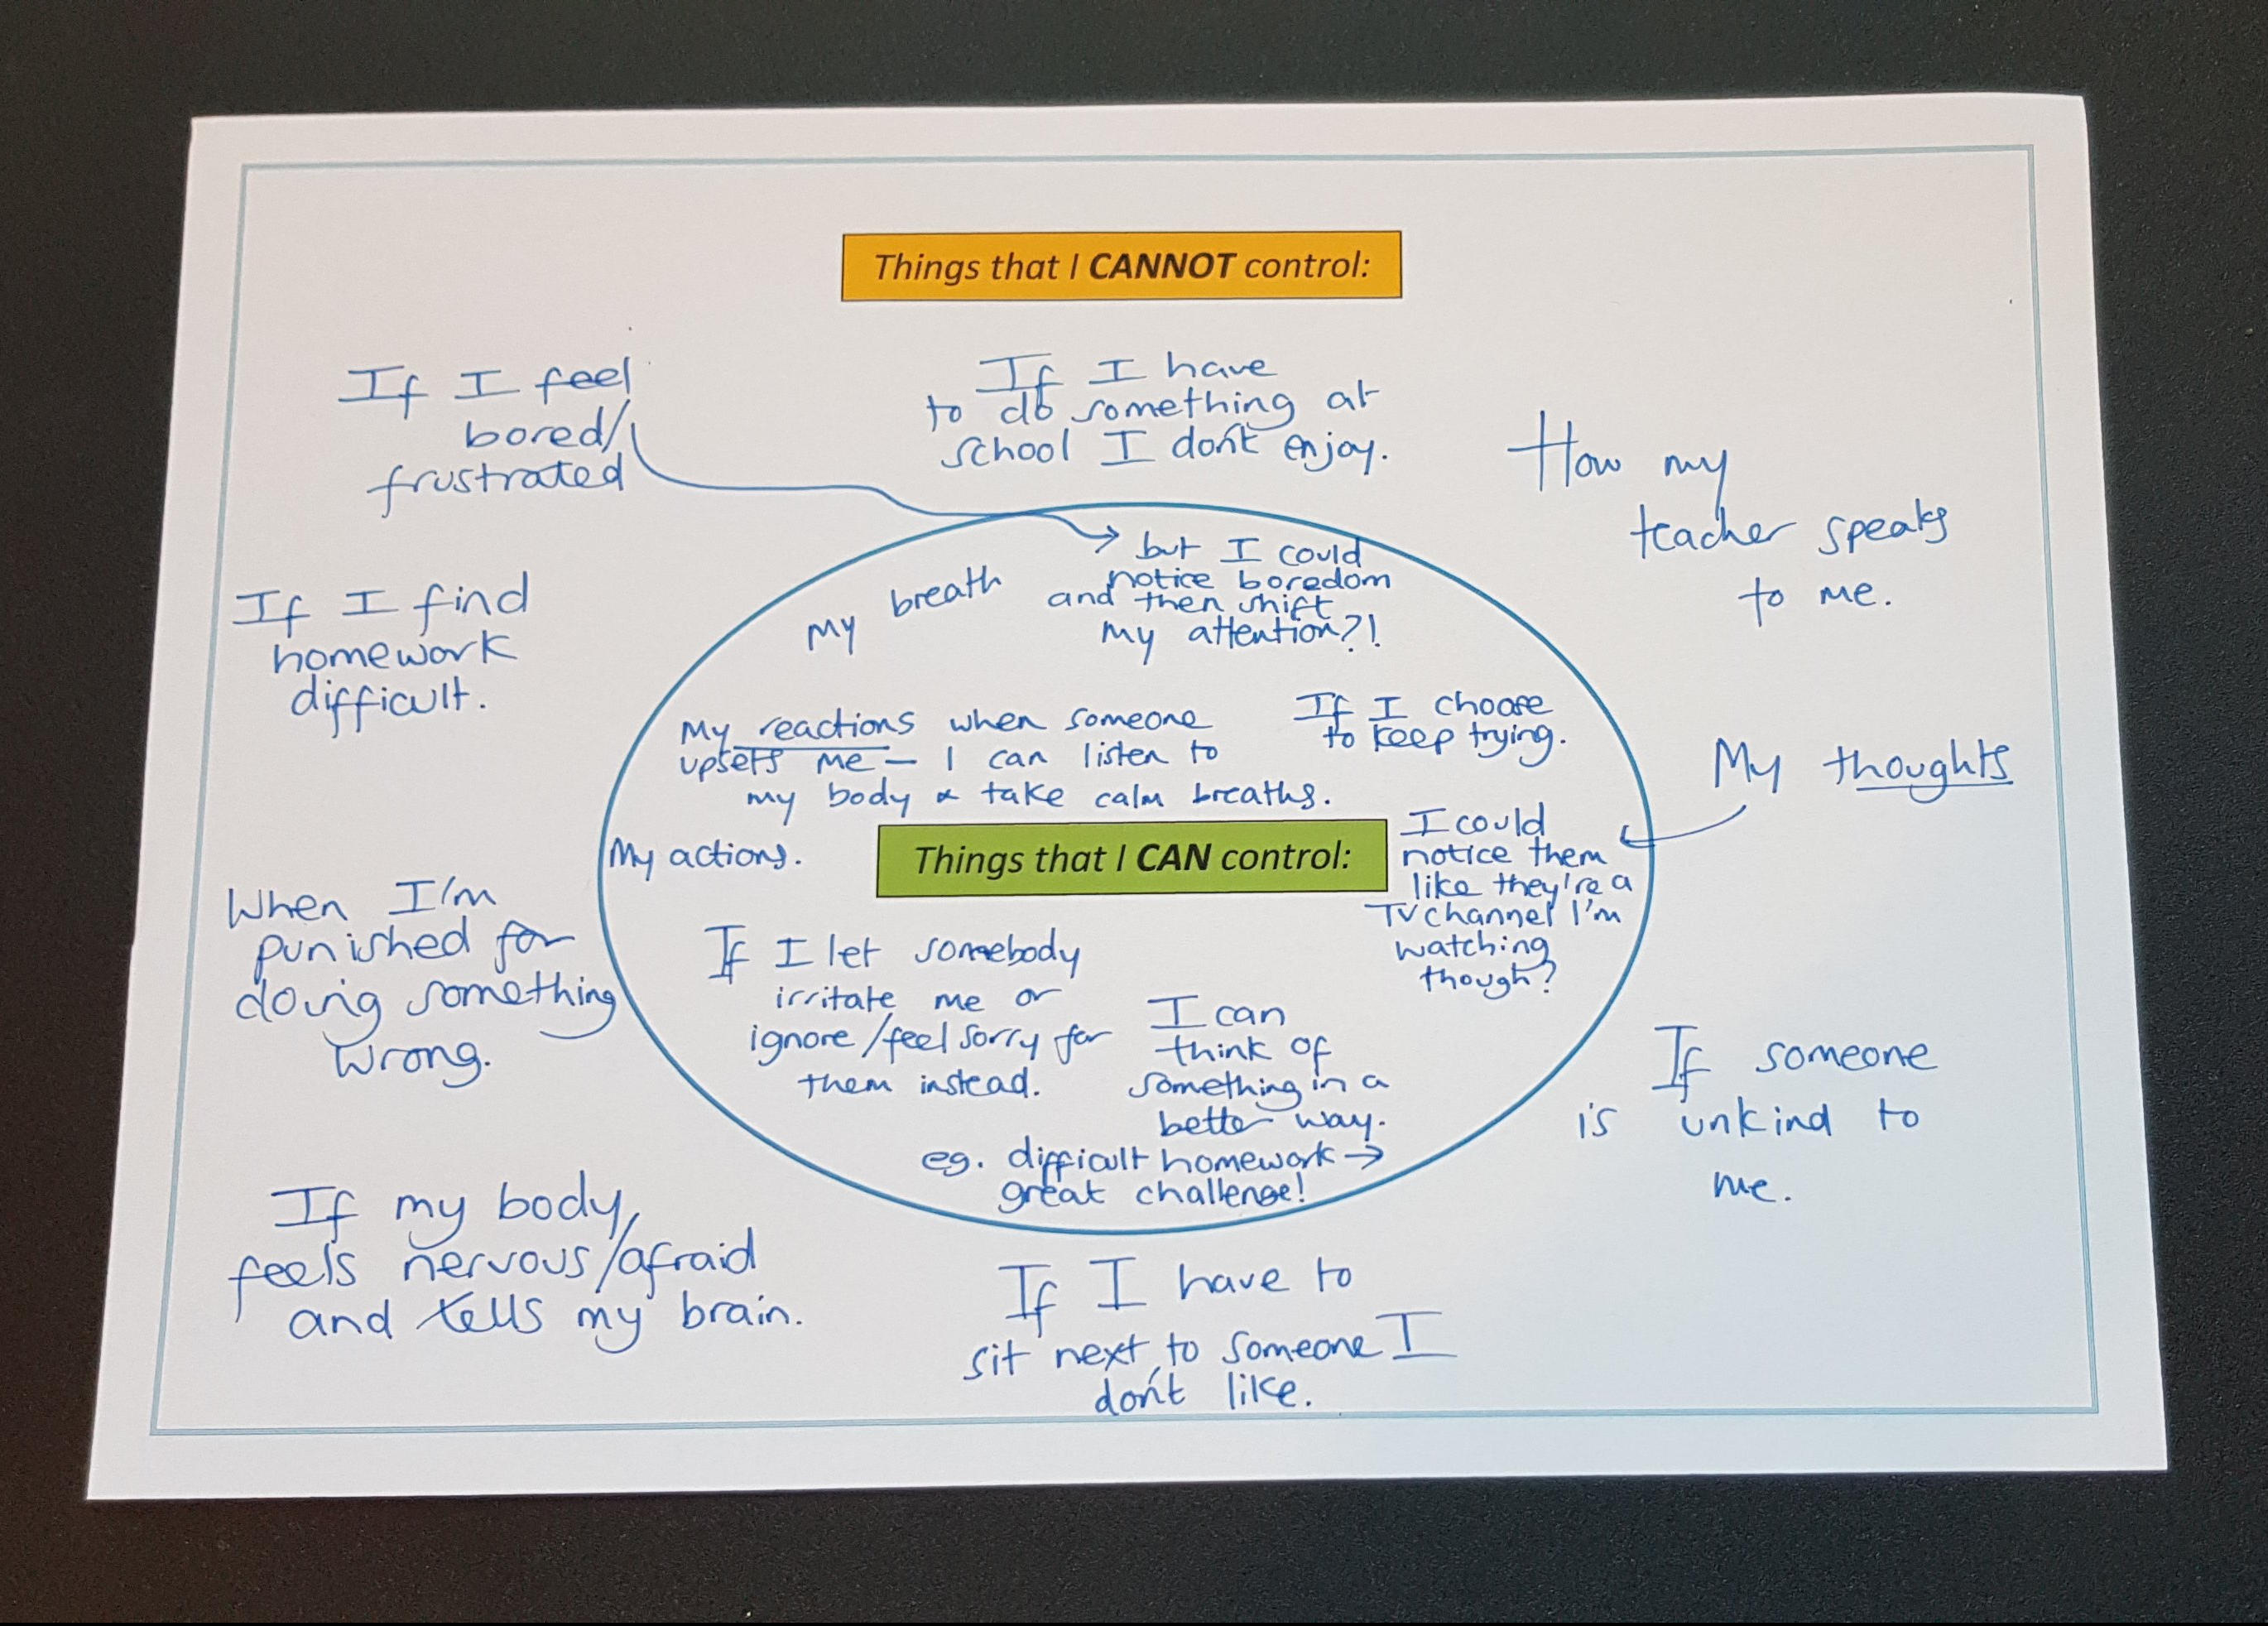 Things that I CANNOT control:
If I feel
bored/
frustrated
If I have
to do something at
school I don't enjoy.
How my
teacher speaks
to me.
My breath
but I could
notice boredom
and then shift
my attention?!
If I find
homework
difficult.
My reactions when someone
upsets me – I can listen to
my body & take calm breaths.
If I choose
to keep trying.
My thoughts
My actions.
Things that I CAN control:
I could
notice them
like they're a
TV channel I'm
watching
though?
When I'm
punished for
doing something
wrong.
If I let somebody
irritate me or
ignore/feel sorry for
them instead.
I can
think of
something in a
better way.
eg. difficult homework →
great challenge!
If someone
is unkind to
me.
If my body
feels nervous/afraid
and tells my brain.
If I have to
sit next to someone I
don't like.